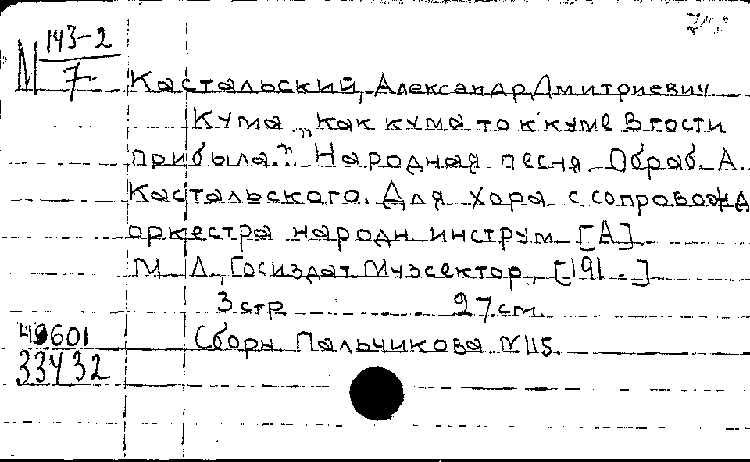 М 143-2
7
Кастальский, Александр Дмитриевич
Кума „Как кума то к куме в гости
прибыла.” Народная песня. Обраб. А.
Кастальского. Для хора с сопровожд
оркестра народн инструм [А]
М Л, Госиздат Музсектор, [191 . ]
3 стр 27 см.
Сборн Пальчикова N 115.
33432